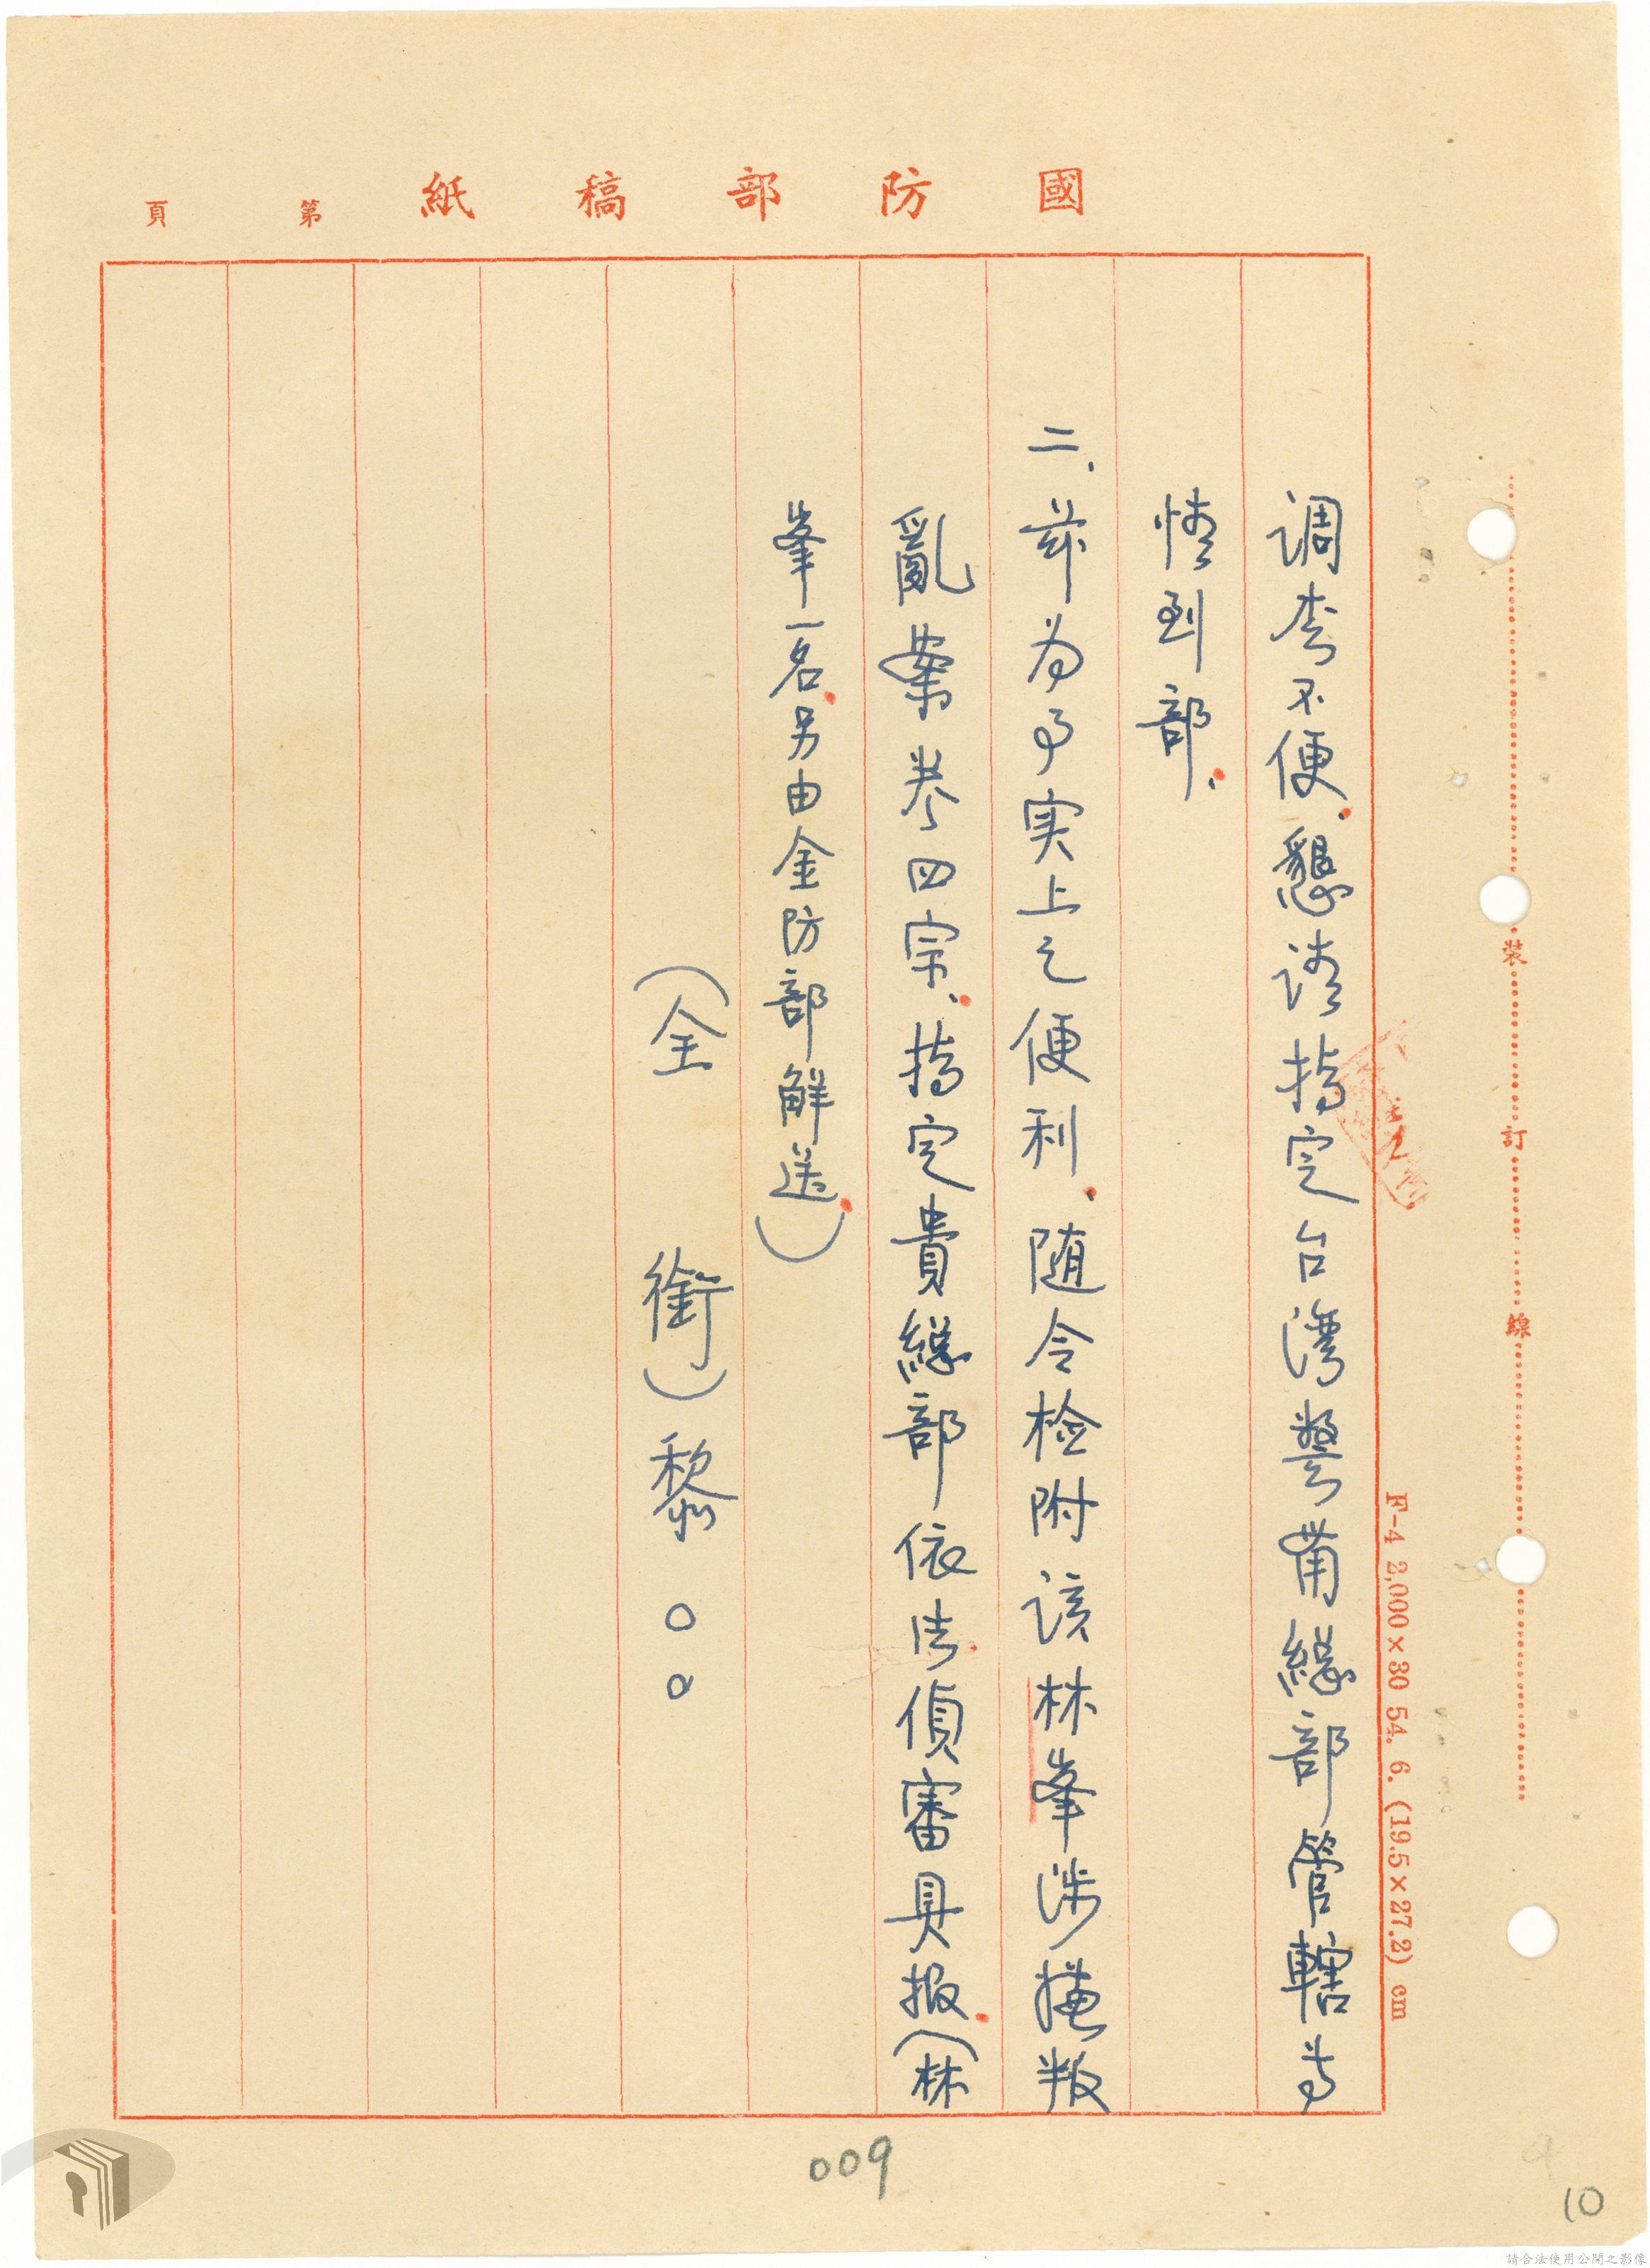 國防部稿紙
第 頁
调查不便、懇请指定台湾警备總部管轄等
情到部、
二、茲为事实上之便利、随令检附该林峯涉嫌叛
亂案卷四宗、指定貴總部依法偵審具报、(林
峯一名、另由金防部解送、)
(全 銜)黎○○
裝 訂 線
F-4 2,000×30 54. 6. (19.5×27.2) cm
009
9
10
請合法使用公開之影像